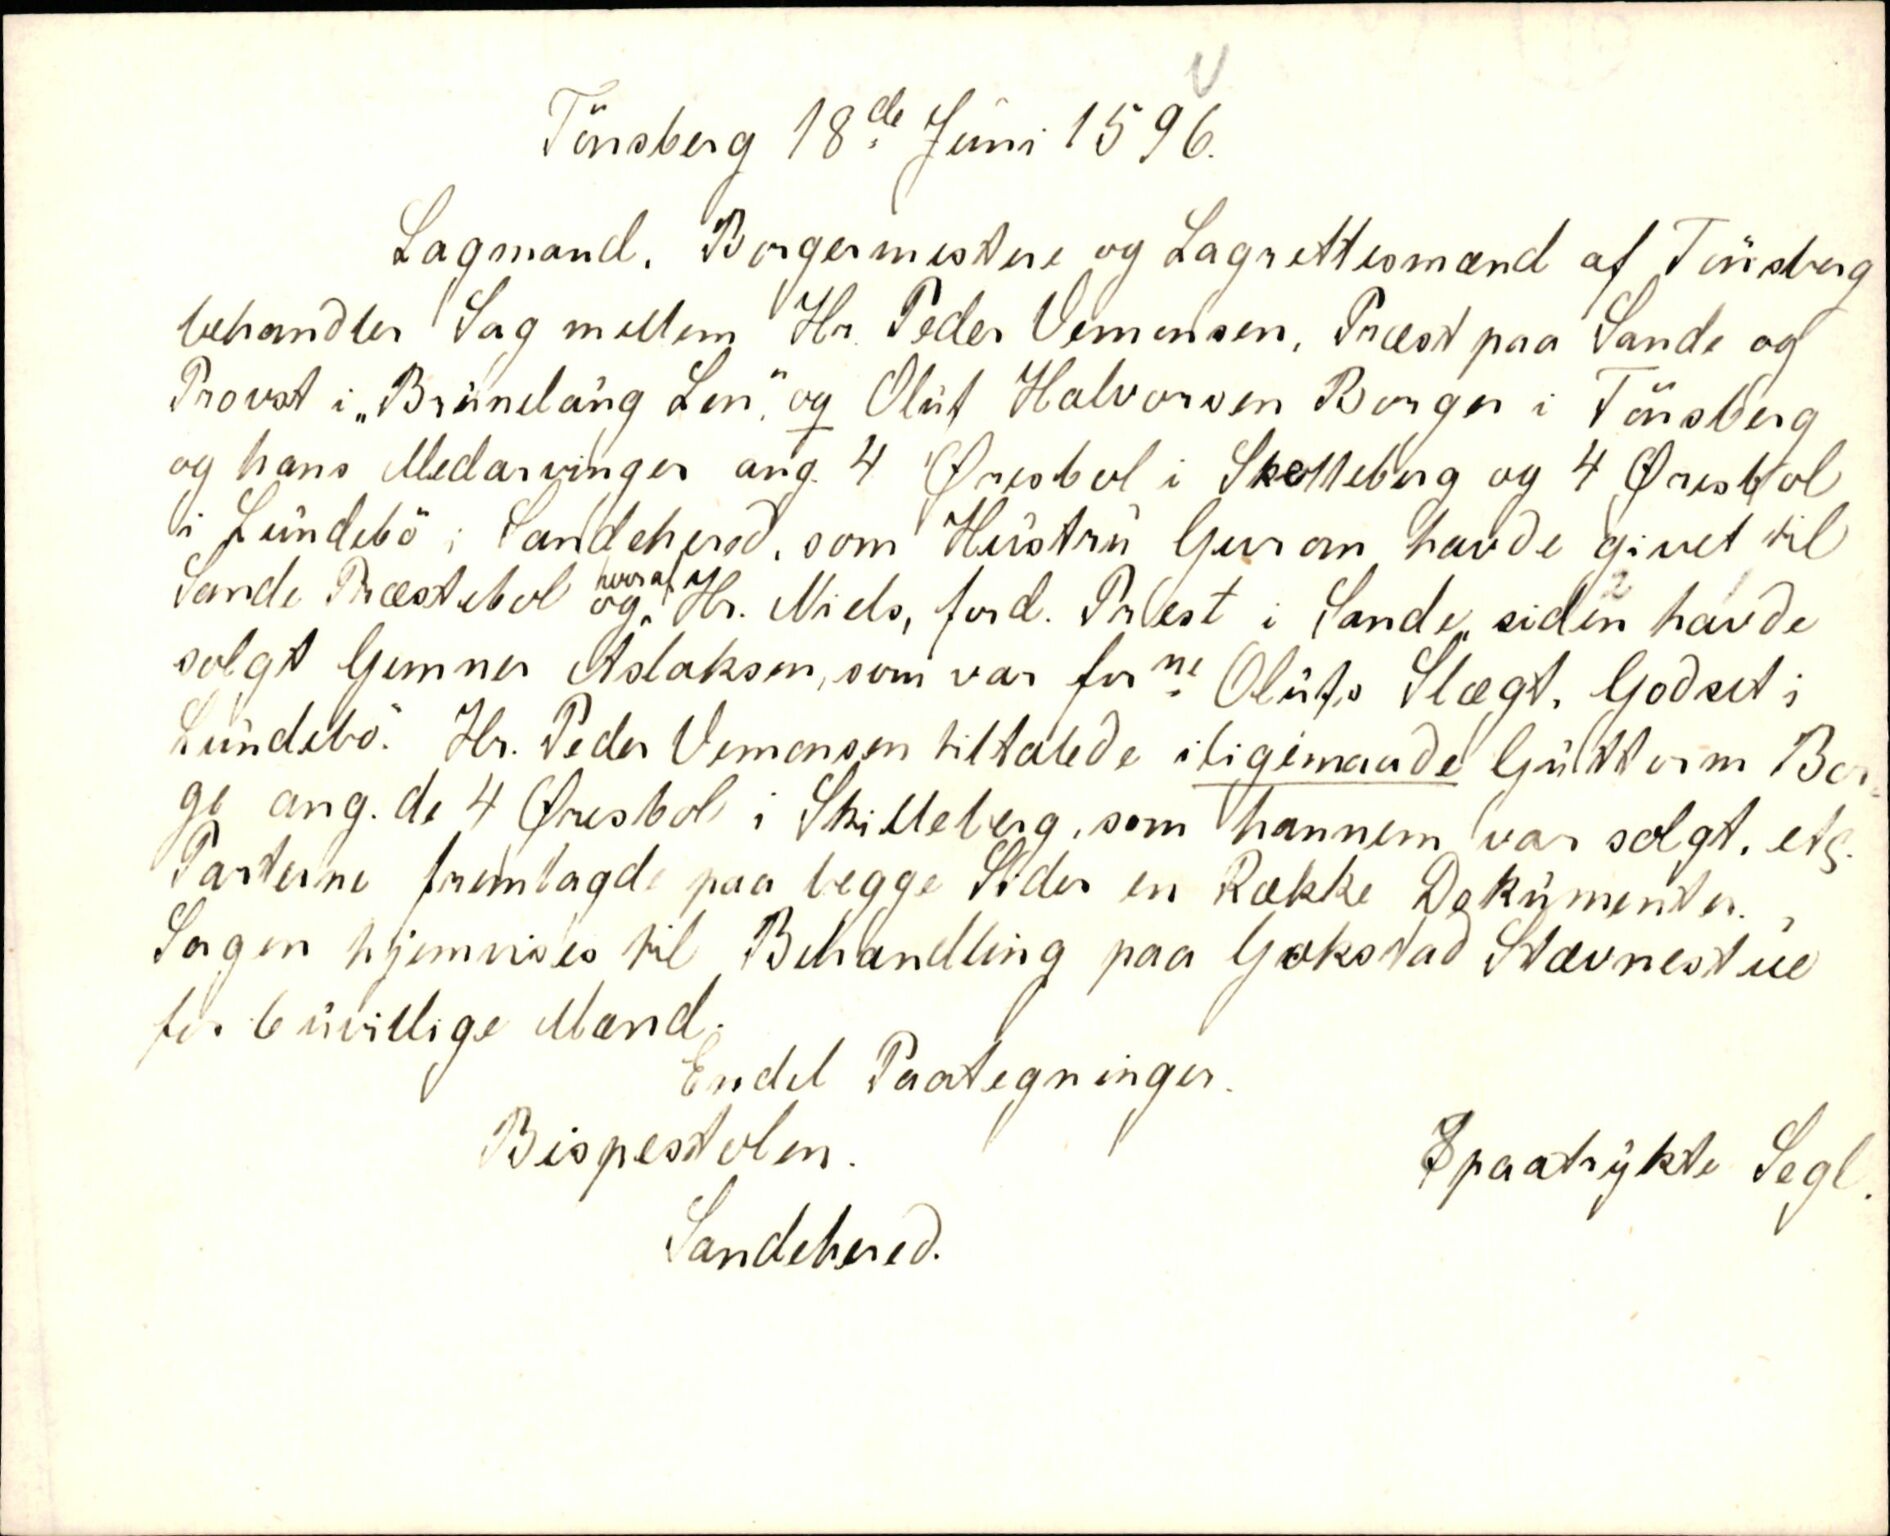 Tönsberg 18de Juni 1596.
Lagmand, Borgermestere og Lagrettesmænd af Tönsberg
behandler Sag mellem Hr. Peder Vemonsen, Præst paa Sande og
Provst i „Brunelaug Len", og Oluf Halvorsen Borger i Tönsberg
og hans Medarvinger ang. 4 Øresbol i Skelleberg og 4 Øresbol
i Lundebö i Sandeherød, som Hustru Guron havde givet til
Sande Præstebol og hvoraf Hr. Niels, ford. Præst i Sande, siden havde
solgt Gunner Aslaksen, som var forne Olufs Slægt, Godset i
Lundebö. Hr. Peder Vemonsen tiltalede iligemaade Guttorm Bor-
ge ang. de 4 Øresbol i Skilleberg, som hannem var solgt, etc.
Parterne fremlagde paa begge Sider en Række Dokumenter.
Sagen hjemvises til Behandling paa Gokstad Stævnestue
for 6 uvillige Mænd.
Endel Paategninger.
Bispestolen.
8 paatrykte Segl.
Sandehered.